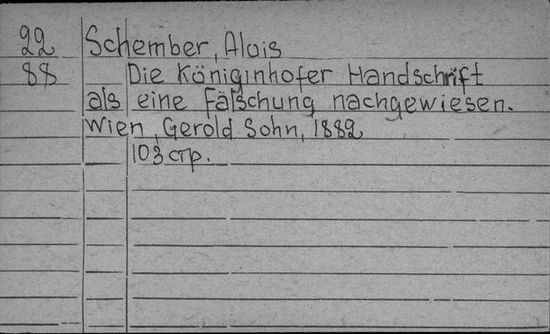 22 Schember, Alois
88 Die Königinhofer Handschrift
als eine Fälschung nachgewiesen.
Wien, Gerold Sohn, 1882
103 стр.